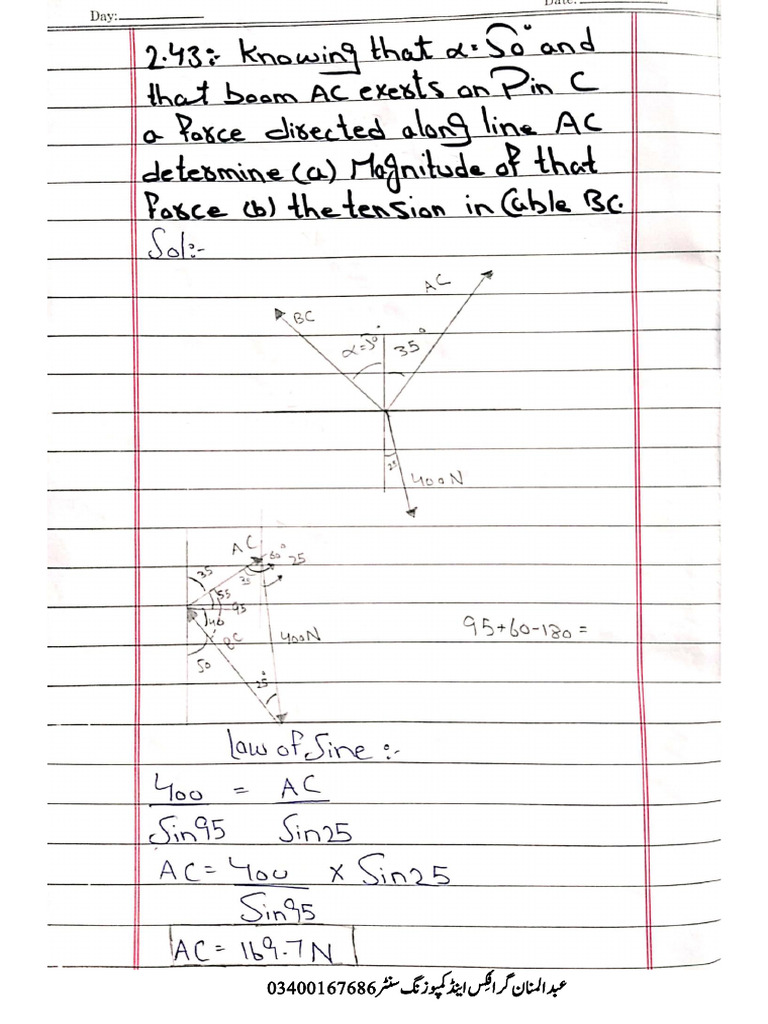 Day:
Date:
2.43:- Knowing that α=50° and
that boom AC exerts on Pin C
a force directed along line AC
determine (a) Magnitude of that
force (b) the tension in Cable BC.
Sol:-
AC
BC
35°
25
400N
AC
60°
25
35
35
55
95
40
BC
400N
95+60-180=
50
25°
Law of Sine:-
400 = AC
Sin95 Sin25
AC= 400 x Sin25
Sin95
AC= 169.7 N
عبدالمنان گرافکس اینڈ کمپوزنگ سنٹر 03400167686